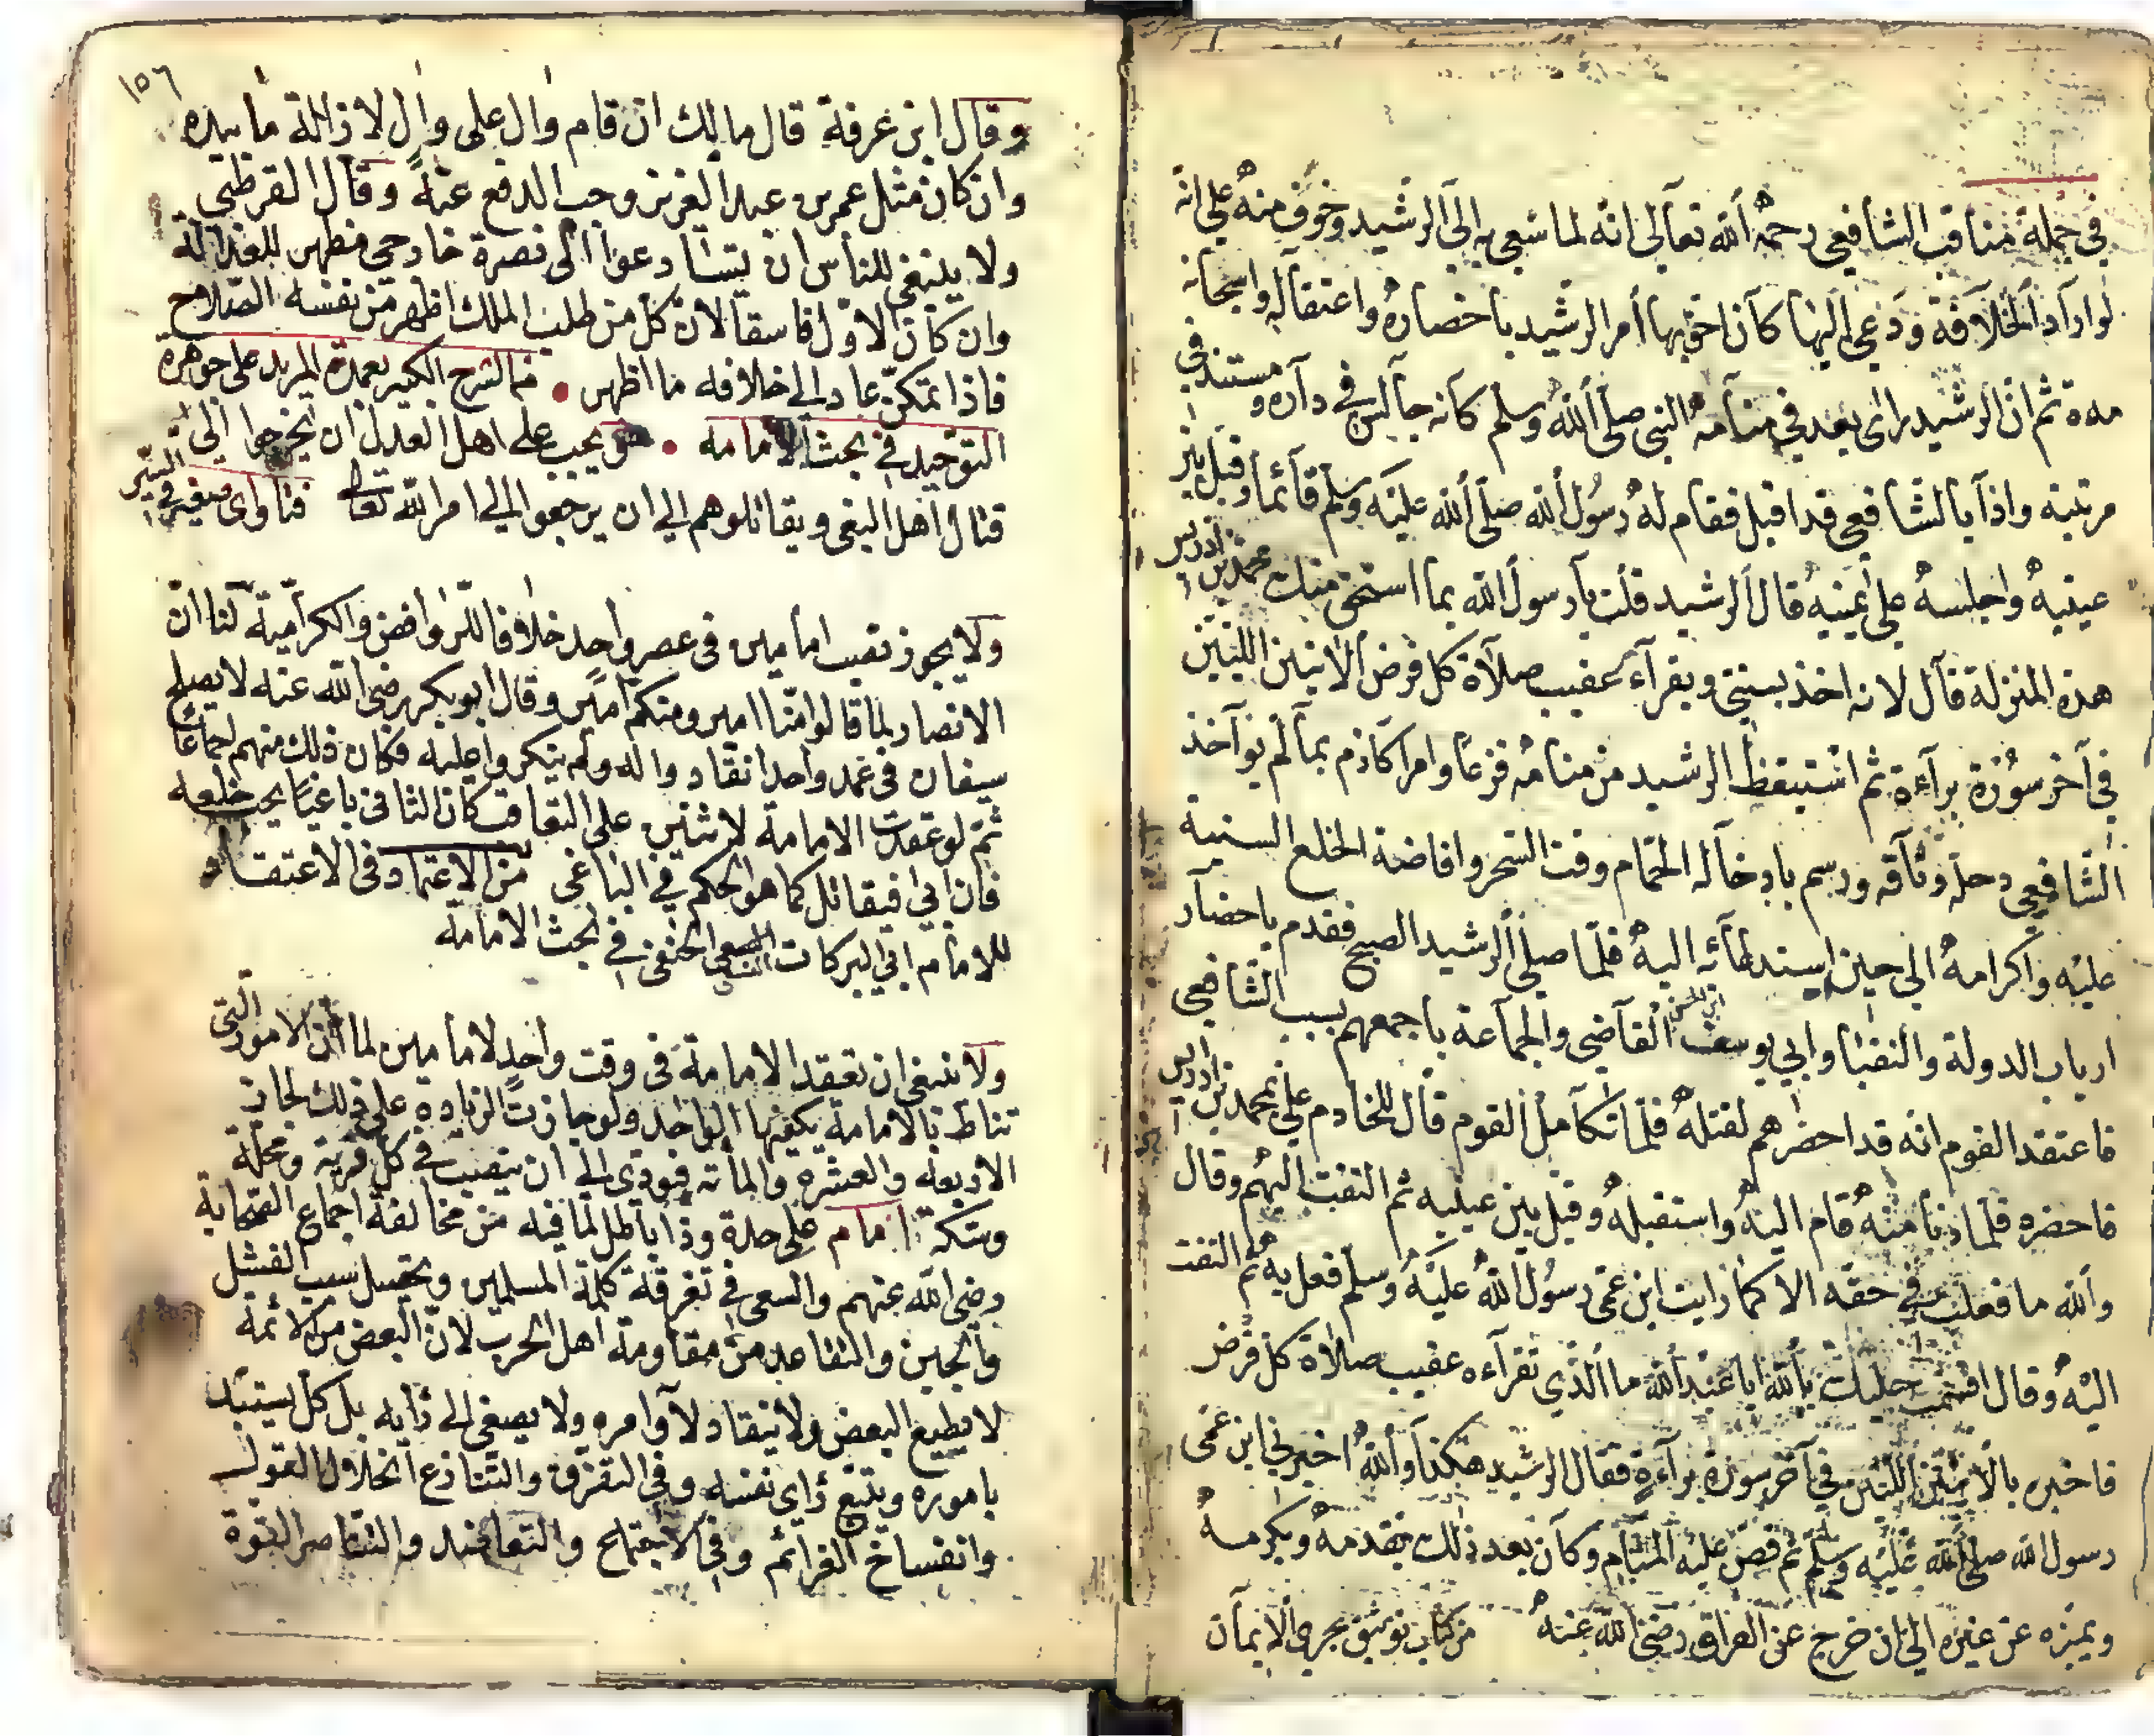 في جملة مناقب الشافعي رحمه الله تعالى انه لما سعي به الى الرشيد وخوف منه على انه
لو اراد الخلافة ودعي اليها كان احق بها أمر الرشيد باحضاره واعتقاله واسجانه
مدة ثم ان الرشيد رای بعد في منامه النبي صلى الله وسلم كانه جالس في داره ومستند في
مرتبته واذا بالشافعي قد اقبل فقام له رسول الله صلى الله عليه وسلم قآئما وقبل بين
عينيه واجلسه على يمينه قال الرشيد قلت يا رسول الله بما استحق منك محمد بن ادريس
هذه المنزلة قال لانه اخذ بسنتي ويقرآء عقيب صلاة كل فرض الايتين اللتين
في آخر سورة برآءة ثم استيقظ الرشيد من منامه فزعا وامر اكارم بما لم يوآخذ
الشافعي وحله وثاقه ورسم بادخاله الحمام وقت السحر وافاضة الخلع السنية
عليه واكرامه الى حين استدعآئه اليه فلما صلى الرشيد الصبح فقدم باحضار
ارباب الدولة والنقبا وابي يوسف القاضي والجماعة باجمعهم بسبب الشافعي
فاعتقد القوم انه قد احضرهم لقتله فلما تكامل القوم قال للخادم علي بمحمد بن ادريس
فاحضره فلما دنا منه قام اليه واستقبله وقبل بين عينيه ثم التفت اليهم وقال
والله ما فعلت في حقه الا كما رايت ابن عمي رسول الله عليه وسلم فعل به ثم التفت
اليه وقال اقسمت عليك بالله ابا عبد الله ما الذي تقرآءه عقيب صلاة كل فرض
فاخبره بالايتين اللتين في آخر سورة برآءة فقال الرشيد هكذا والله اخبرني ابن عمي
رسول الله صلى الله عليه وسلم ثم قص عليه المنام وكان بعد ذلك يقدمه ويكرمه
ويميزه عن غيره الى ان خرج عن العراق رضي الله عنه من كتاب توثيق عرى الايمان
١٥٦
وقال ابن عرفة قال مالك ان قام وال على وال لازالة ما بيده
وان كان مثل عمر بن عبد العزيز وجب الدفع عنه وقال القرطبي
ولا ينبغي للناس ان يتسادعوا الى نصرة خارجي مظهر للعدالة
وان كان الاول فاسقا لان كل من طلب الملك اظهر من نفسه الصلاح
فاذا تمكن عاد الى خلافه ما اظهر • من الشرح الكبير بعمدة المريد على جوهرة
التوحيد في بحث الامامة • يجب على اهل العدل ان يخرجوا الى
قتال اهل البغي ويقاتلوهم الى ان يرجعوا الى امر الله تعالى فتاوى صغير في السير
ولا يجوز نصب امامين في عصر واحد خلافا للروافض والكرامية لنا ان
الانصار لما قالوا منا امير ومنكم امير وقال ابو بكر رضي الله عنه لا يصلح
سيفان في غمد واحد انقادوا له ولم ينكروا عليه فكان ذلك منهم اجماعا
ثم لو عقدت الامامة لاثنين على التعاقب كان الثاني باغيا يجب خلعه
فان ابى فيقاتل كما هو الحكم في الباغي من الاعتماد في الاعتقاد
للامام ابي البركات النسفي الحنفي في بحث الامامة
ولا ينبغي ان تعقد الامامة في وقت واحد لامامين لما ان الامور التي
تناط بالامامة يكفيها الواحد ولو جازت الزيادة على ذلك لجاز
الاربعة والعشرة والمائة فيودي الى ان ينصب في كل قرية ومحلة
وسكة امام على حدة وذا باطل لما فيه من مخالفة اجماع الصحابة
رضي الله عنهم والسعي في تفرقة كلمة المسلمين وتحصيل سبب الفشل
والجبن والتقاعد من مقاومة اهل الحرب لان البعض من الائمة
لا يطيع البعض ولا ينقاد لاوامره ولا يصغى الى رايه بل كل يستبد
باموره ويتبع راى نفسه وفي التفرق والتنازع انحلال القول
وانفساخ العزائم وفي الاجتماع والتعاضد والتناصر القوة